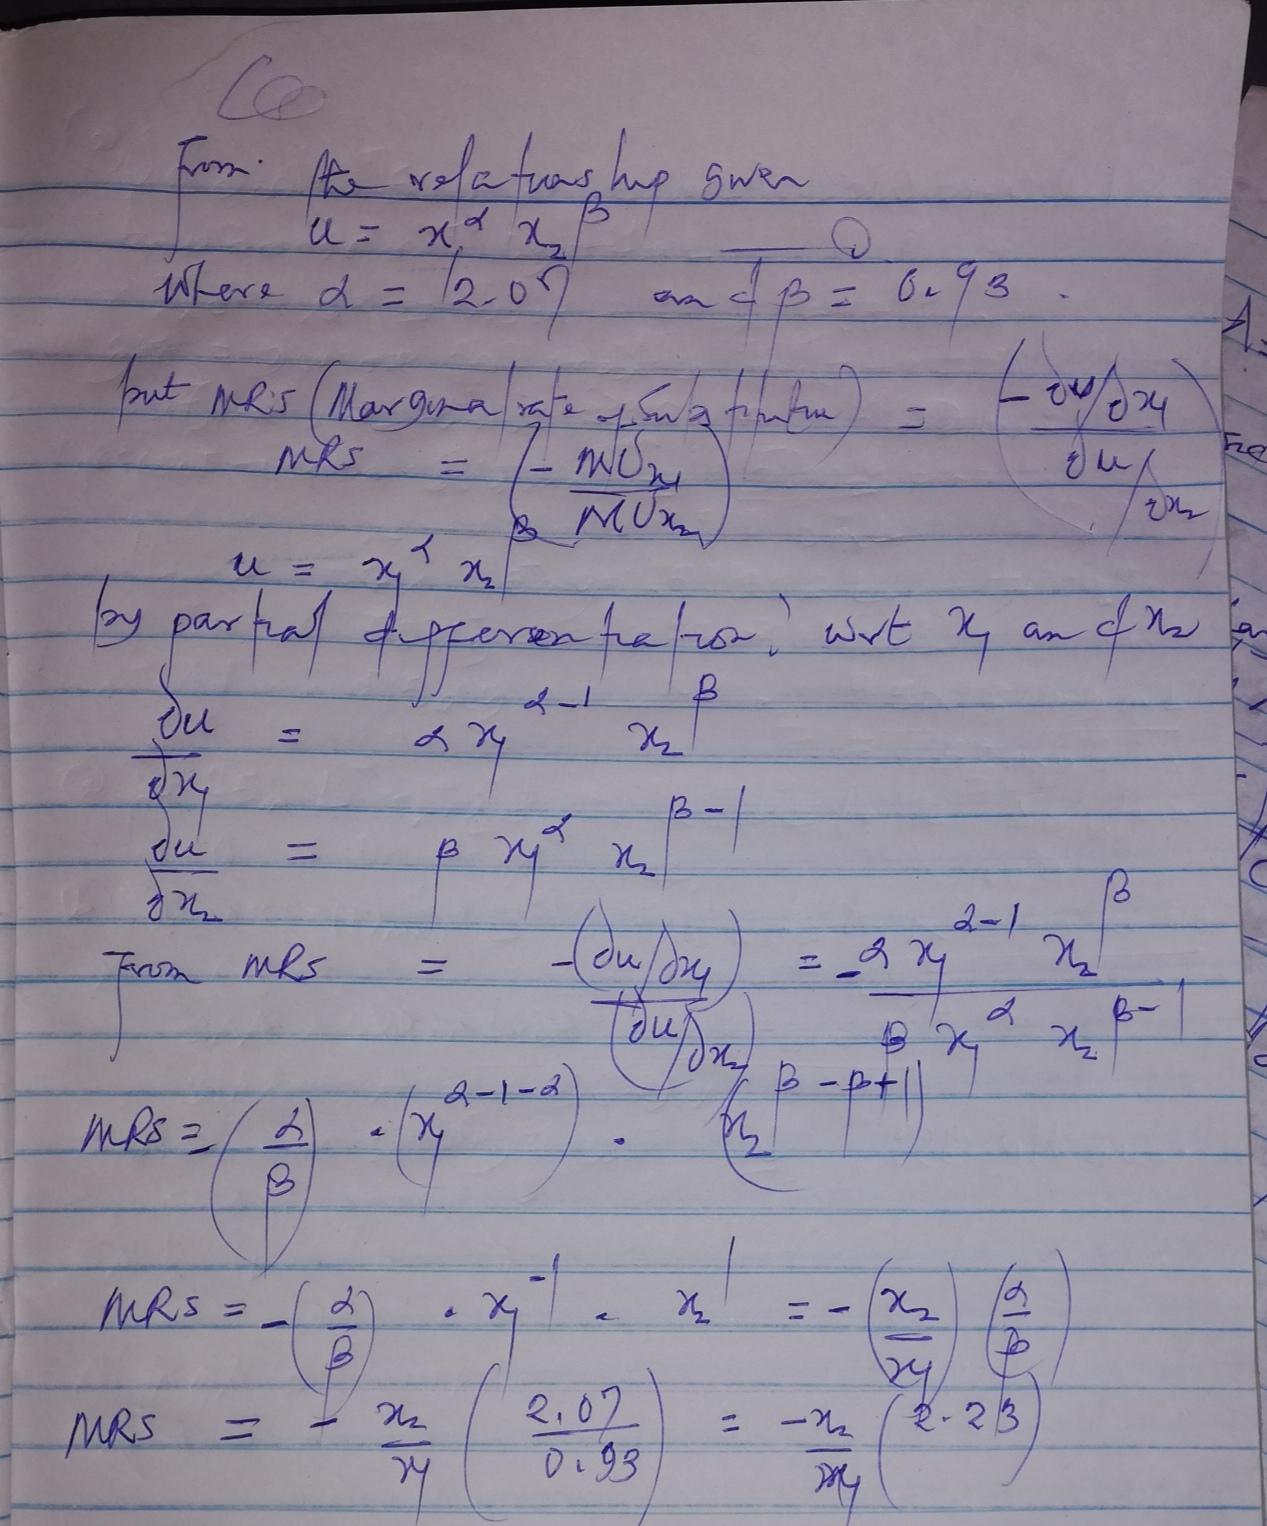 From the relationship given
u = x₁^α x₂^β —— ①
Where α = 2.07 and β = 0.93.
but MRS (Marginal rate of Substitution) = (- ∂u/∂x₁ / ∂u/∂x₂)
MRS = (- MUx₁ / MUx₂)
u = x₁^α x₂^β
by partial differentiation, wrt x₁ and x₂
∂u/∂x₁ = α x₁^(α-1) x₂^β
∂u/∂x₂ = β x₁^α x₂^(β-1)
From MRS = -(∂u/∂x₁) / (∂u/∂x₂) = -α x₁^(α-1) x₂^β / β x₁^α x₂^(β-1)
MRS = (α/β) · (x₁^(α-1-α)) · (x₂^(β-β+1))
MRS = -(α/β) · x₁^-1 · x₂^1 = -(x₂/x₁) (α/β)
MRS = - x₂/x₁ (2.07/0.93) = -x₂/x₁ (2.23)